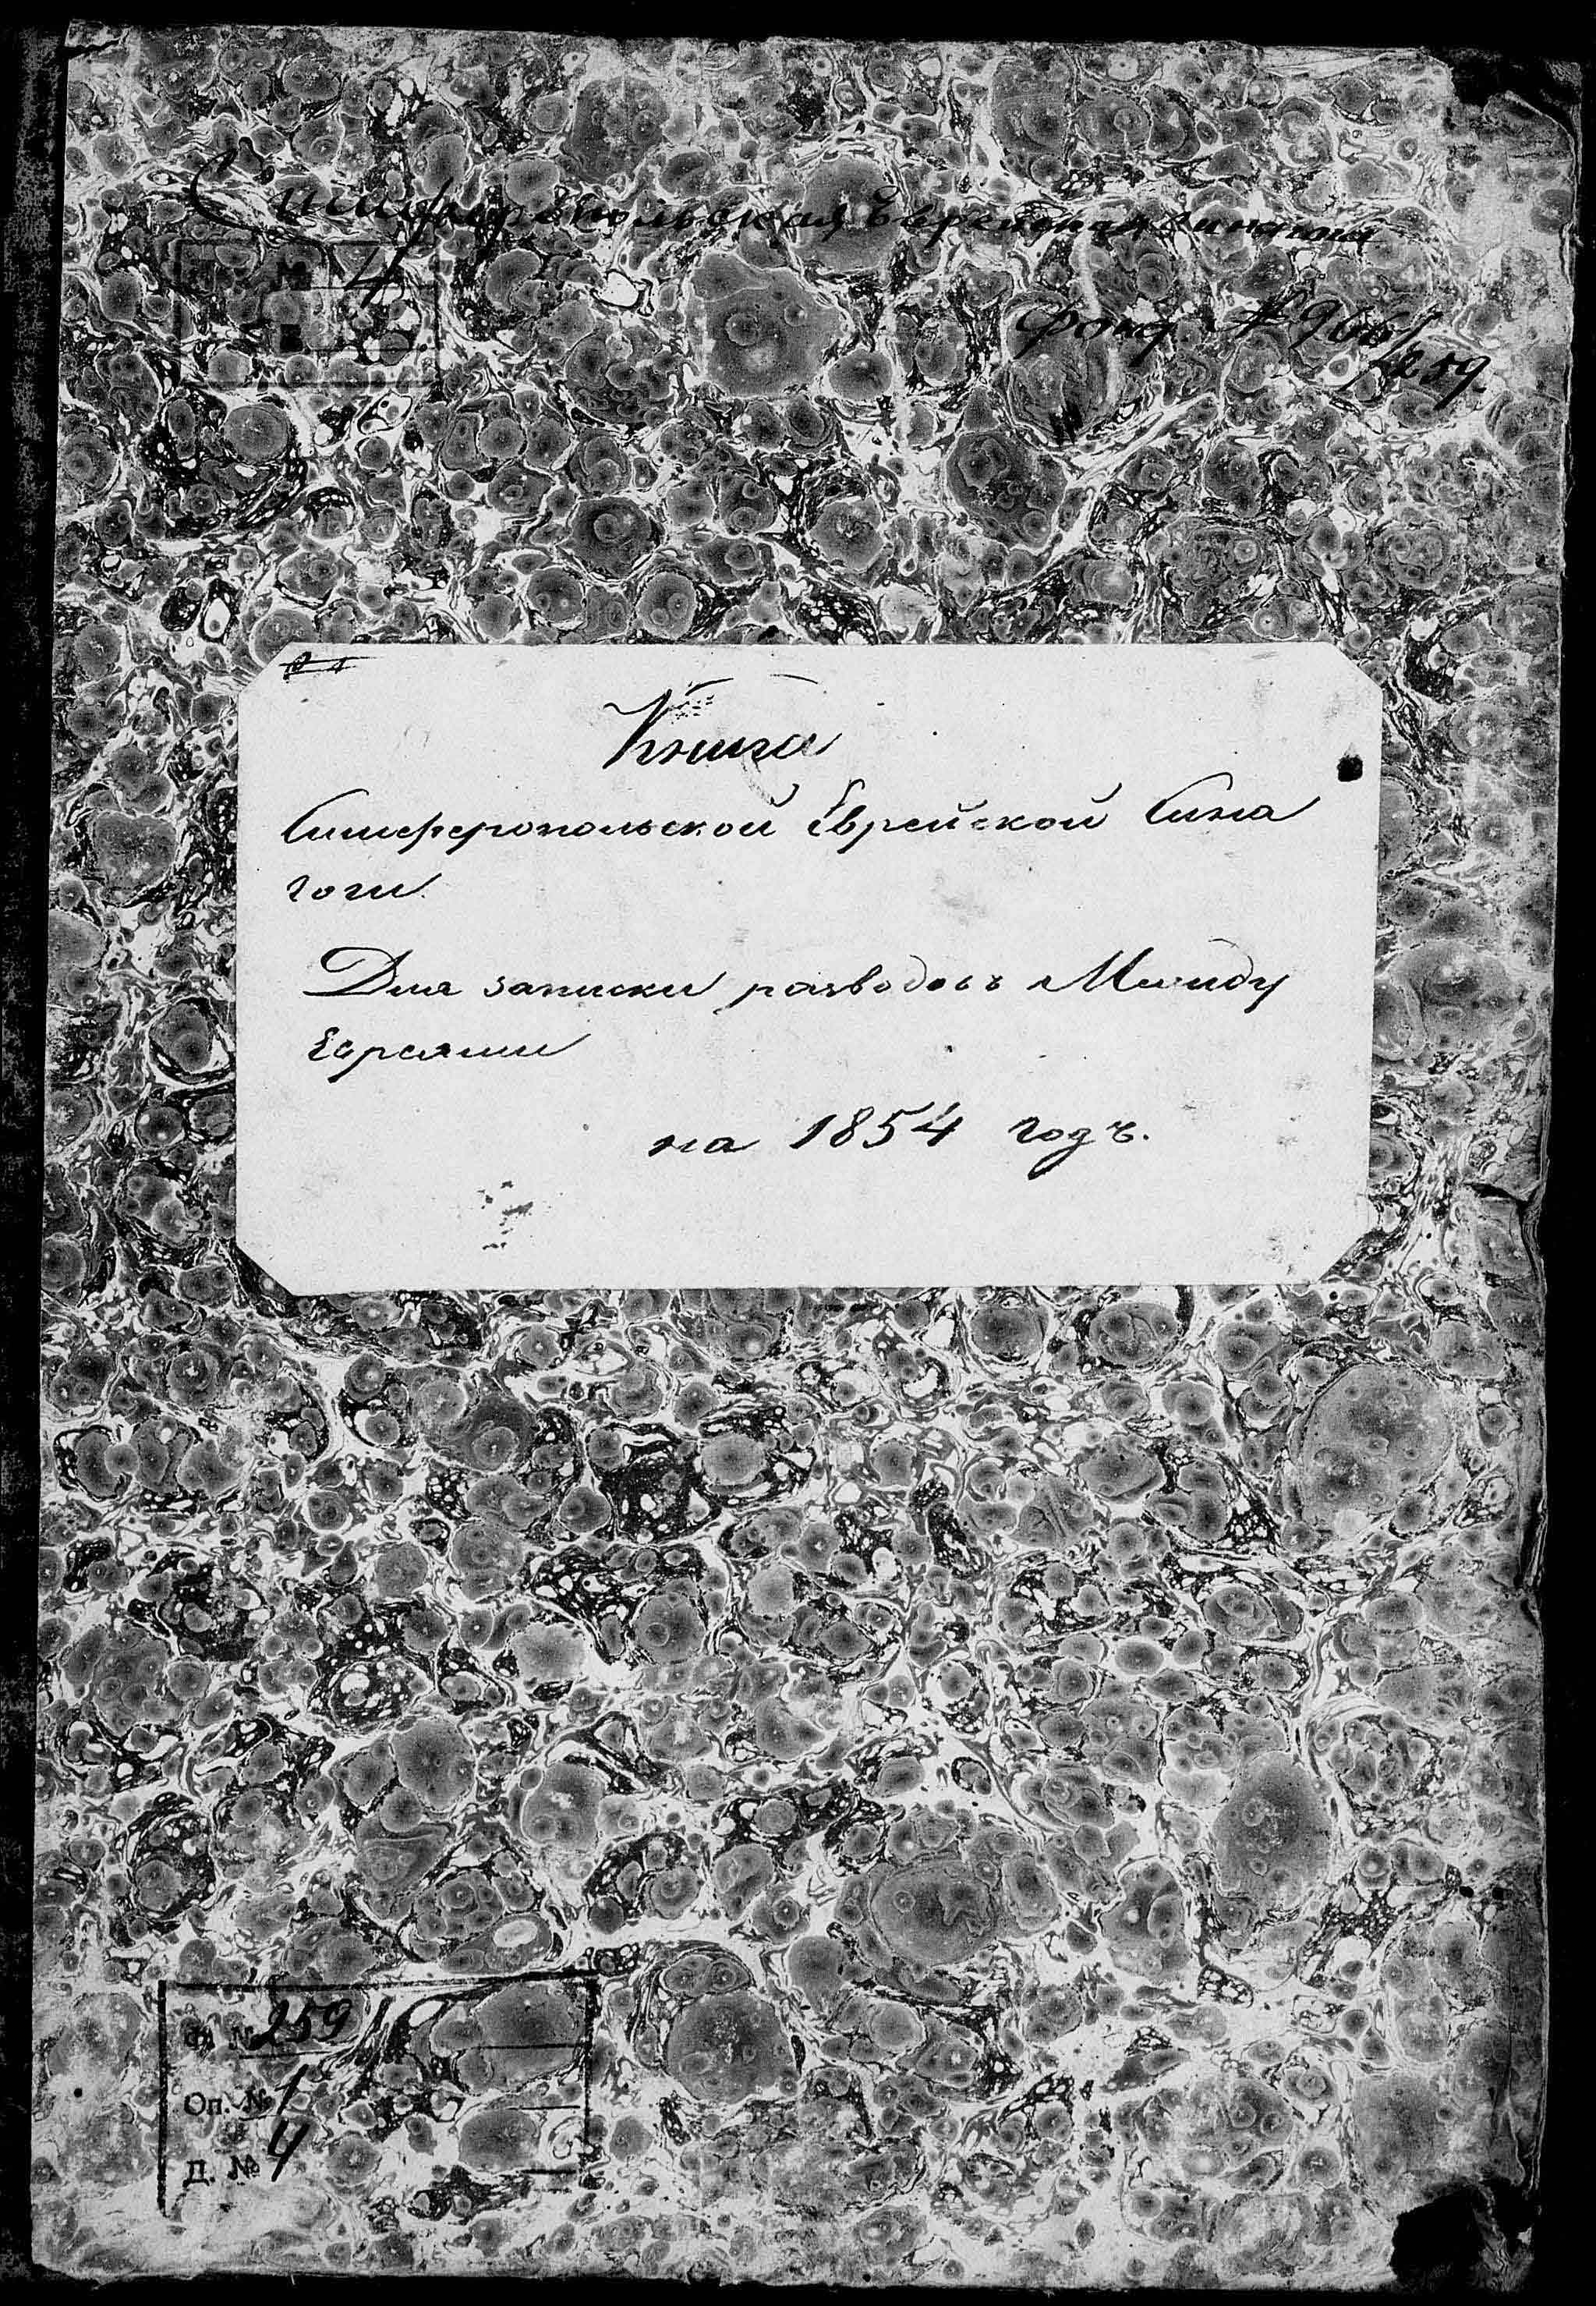 Симферопольская Еврейская Синагога
№ 4
Фонд № 966/259
Книга
Симферопольской Еврейской Сина
гоги.
Для записки разводовъ Между
Евреями
на 1854 годъ.
Ф. № 259
Оп. № 1
Д. № 4